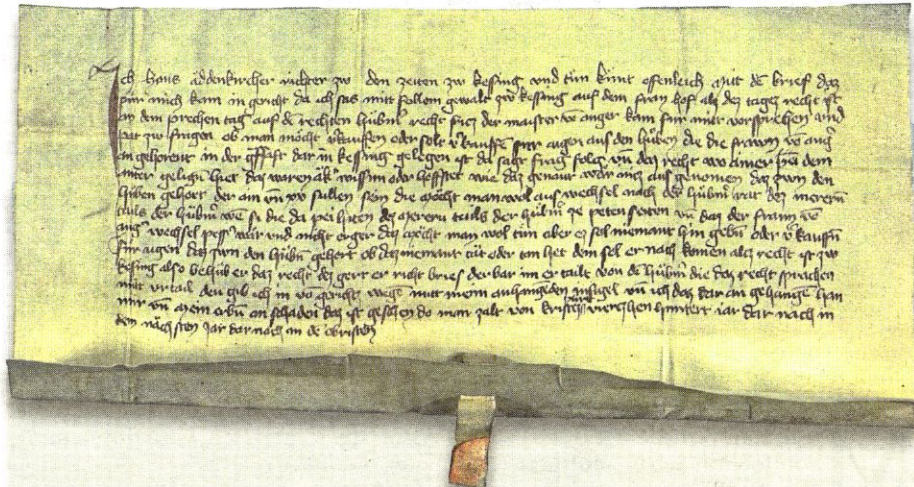 Ich Hans Addenkircher richter zw den zeiten zw kessing vnd tun kunt offenleich mit dē brief daz
für mich kam in gericht da ich sas mitt follom gewalt zw kessing auf dem fran hof alz dez tagez recht ist
an dem sprechen tag auf de rechten hübnr recht der maister vō anger kam für mitt vorsprechen vnd
pat zw fragen ob man möcht v̄kauffen oder solt v̄kauffē für aigen aus den hüben die die frawn vō ang̃
an gehorent in der dar in kessing gelegen ist da sagt frag folg vn̄ daz recht wo ainer dem
inter het daz waren äk̃ wissmn oder hoffstet wie daz genant wär nicz aus genomen daz zwn den
hüben gehört der ain vn̄ xx sullen sein die möcht man wol aus wechsel nach der hübnr rat dez merern
tails der hübnr wē si die da pei sitten dez merern tails der hübnr ze peten seiten vn̄ daz der frawn vō
ang̃ wechsel pesser wär vnd nicht erger daz möcht man wol tun aber ez sol niemant hin gebn̄ oder v̄kauffn̄
für aigen daz zwn den hübn̄ gehört ob daz niemant tät oder tan het dem sol er nach komen alz recht ist zw
kessing also behüb er daz recht dez gert er gericht brief der bar im er tailt von dē hübnr̄ die daz recht sprachen
mitt vrtail den gib ich in vō gericht wegē mitt meim anhangūden insigel vn̄ ich daz dar an gehangē han
mir vn̄ mein erbn̄ an schaden daz ist geschen do man zalt von kristen gepurd vierczehen hundert iar dar nach in
dem nächsten iar dar nach in de obristen